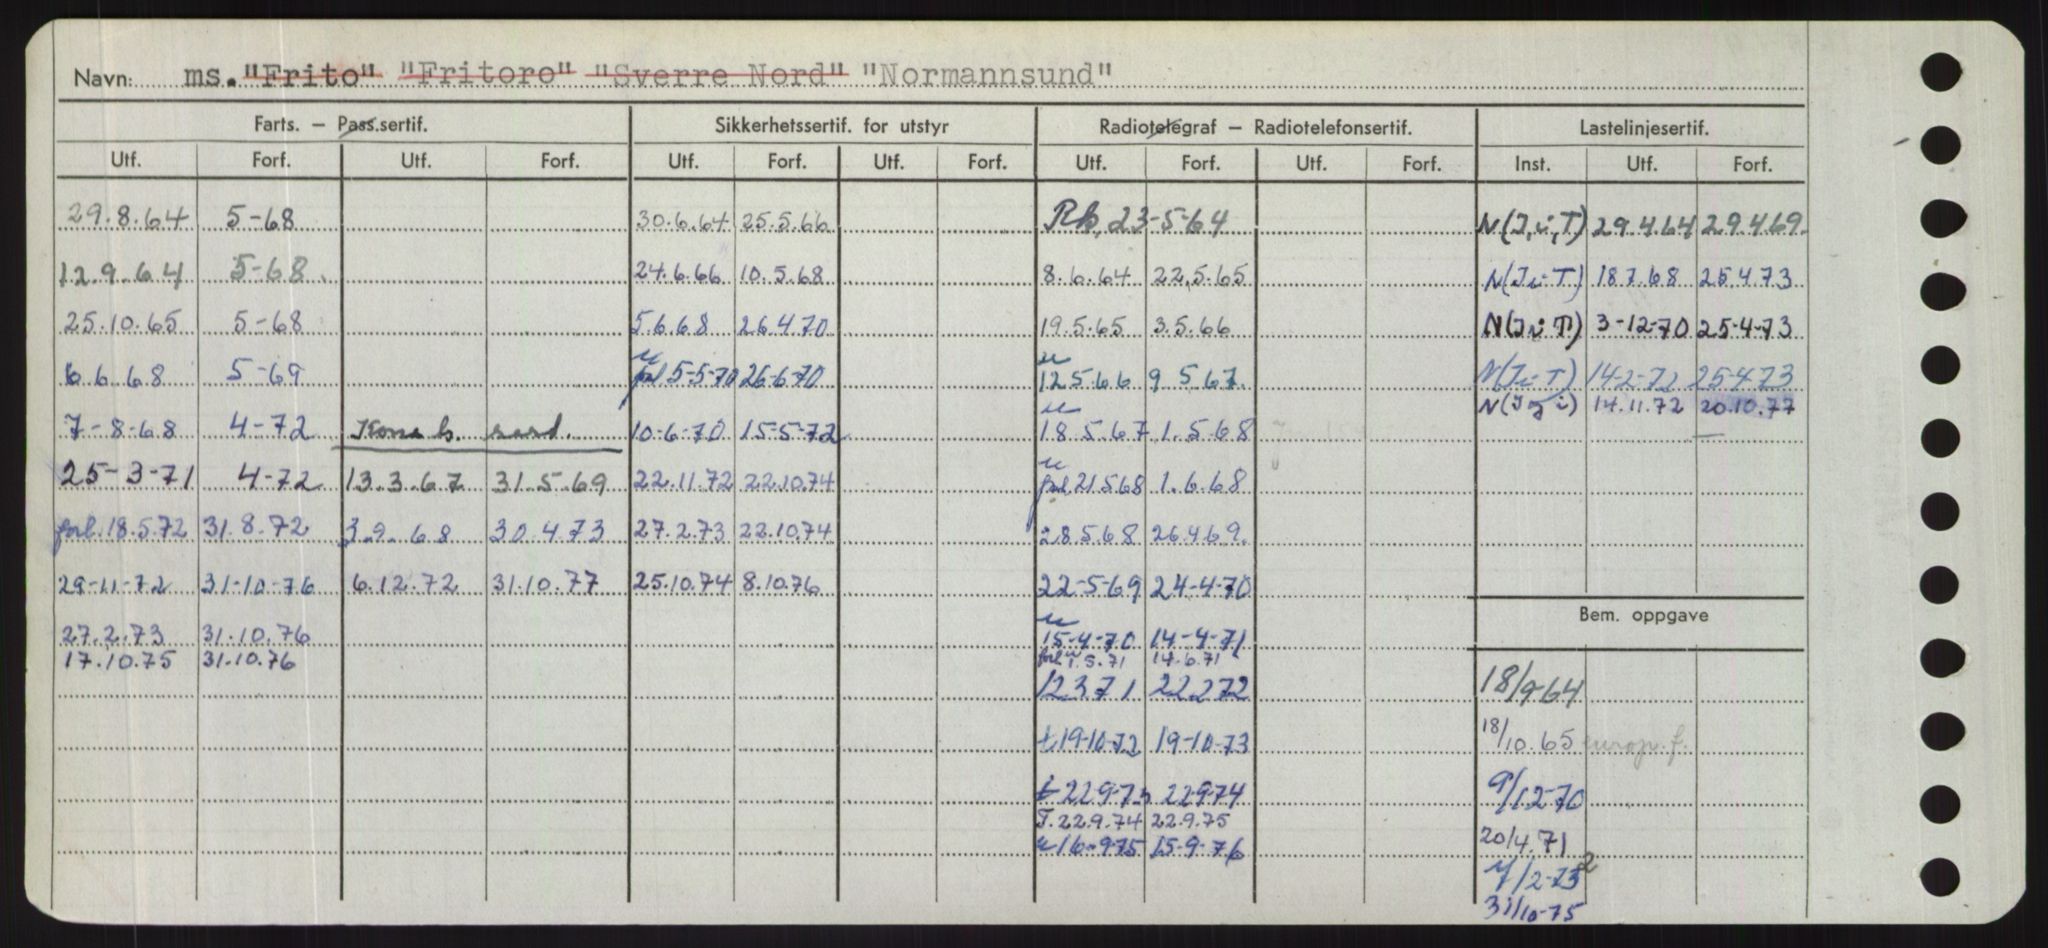 Navn: ms. "Frito" "Fritoro" "Sverre Nord" "Normannsund"
Farts. – Pass.sertif. Sikkerhetssertif. for utstyr Radiotelegraf – Radiotelefonsertif. Lastelinjesertif.
Utf. Forf. Utf. Forf. Utf. Forf. Utf. Forf. Utf. Forf. Utf. Forf. Inst. Utf. Forf.
29.8.64 5-68 30.6.64 25.5.66 Rk, 23-5-64 N(J,i,T) 29.4.64 29.4.69.
12.9.64 5-68. 24.6.66 10.5.68 8.6.64 22.5.65 N(J i T) 18 7.68 25 4 73
25.10.65 5-68 5 6 68 26.4 70 19.5.65 3.5.66 N(J i T) 3-12-70 25-4-73
6 6 68 5-69 forl 5-5-70 26-6-70 u 12 5 66 9 5 67. N(J i T) 14-2-72 25 4 73
N(J i) 14.11.72 20.10.77
7-8-68 4-72 sard. 10-6-70 15-5-72 u 18 5.67 1.5.68
25-3-71 4-72 13.3.67 31.5.69 22.11.72 22.10.74 u forl. 21 5 68 1.6.68
forl. 18.5.72 31.8.72 3.9.68 30.4.73 27.2.73 22.10.74 28 5 68 26.4 69.
29-11-72 31-10-76 6.12.72 31.10.77 25.10.74 8.10.76 22-5-69 24-4-70
Bem. oppgave
27.2.73 31.10.76 u 15-4-70 14-4-71
17.10.75 31.10.76 forl u 1.5.71 14.6.71
12 3 71 22 2 72 18/9-64
t 19-10-72 19-10-73 18/10.65 europ. f.
t 22 9-73 22 9-74 9/12-70
T. 22.9.74 22.9.75
u 16-9 75 15-9-76 20/4.71
31/10-75